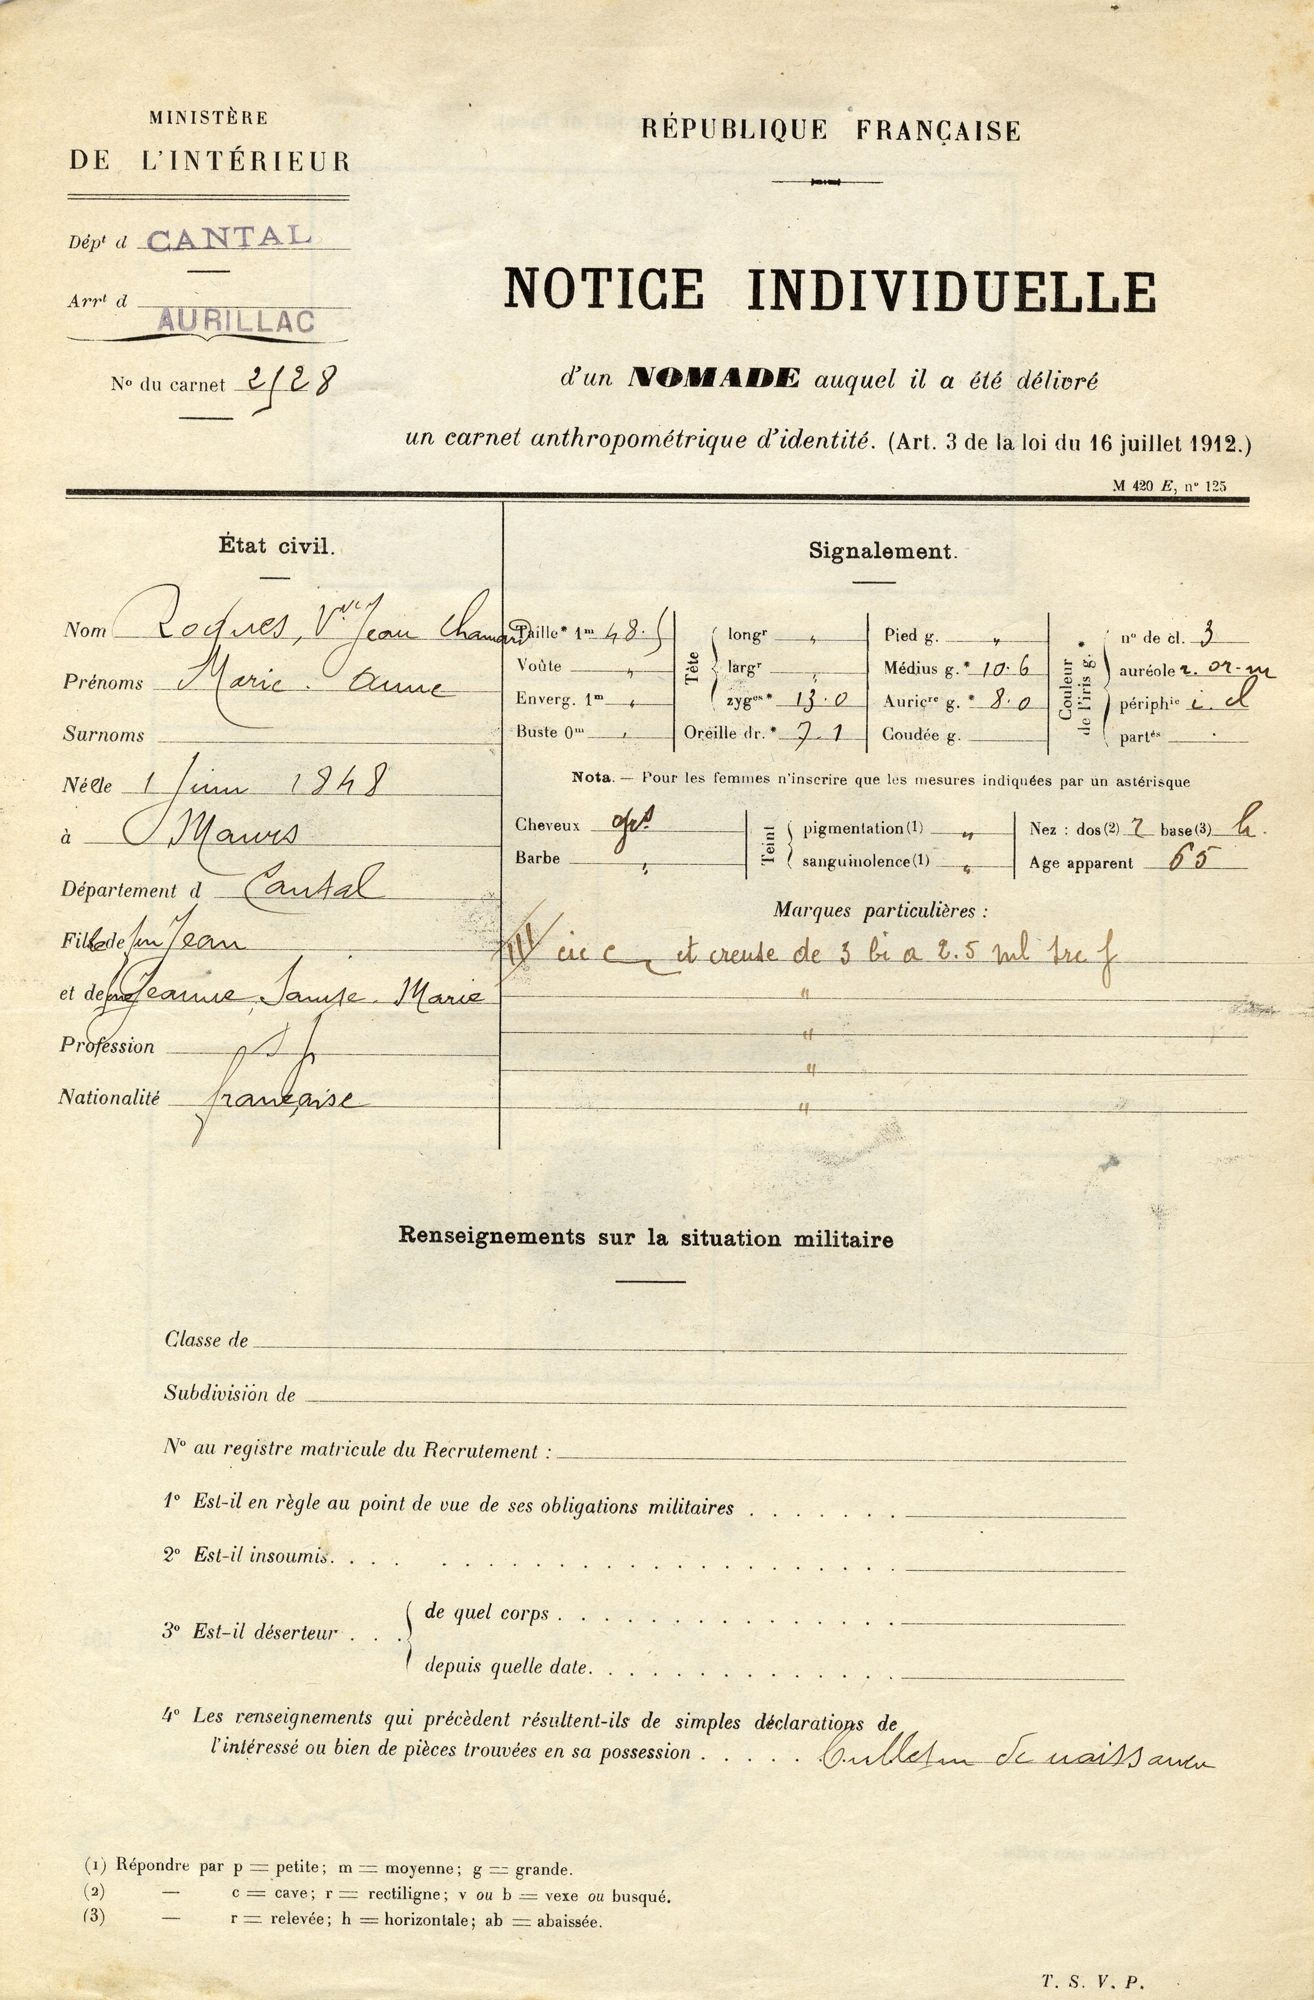 MINISTÈRE
DE L'INTÉRIEUR
Dépt d CANTAL
Arrt d AURILLAC
No du carnet 2528
RÉPUBLIQUE FRANÇAISE
NOTICE INDIVIDUELLE
d'un NOMADE auquel il a été délivré
un carnet anthropométrique d'identité. (Art. 3 de la loi du 16 juillet 1912.)
M 420 E, n° 125
État civil.
Nom Roques, Vve Jean Chamard
Prénoms Marie-Anne
Surnoms
Née le 1 Juin 1848
à Maurs
Département d Cantal
Fille de feu Jean
et de feue Jeanne, Marie
Profession sp
Nationalité française
Signalement.
Taille* 1m 48.5
Voûte "
Enverg. 1m "
Buste 0m "
Tête
longr "
largr "
zyges* 13.0
Oreille dr.* 7.1
Pied g. "
Médius g.* 10.6
Auricre g.* 8.0
Coudée g.
Couleur de l'iris g.*
n° de cl. 3
auréole r. or-m
périphie i. cl
partés
Nota. — Pour les femmes n'inscrire que les mesures indiquées par un astérisque
Cheveux grs
Barbe "
Teint
pigmentation (1) "
sanguinolence (1) "
Nez : dos (2) r base (3) h.
Age apparent 65
Marques particulières :
III cic et creuse de 3 bi a 2.5 ml
"
"
"
"
Renseignements sur la situation militaire
Classe de
Subdivision de
N° au registre matricule du Recrutement :
1° Est-il en règle au point de vue de ses obligations militaires . . . . . . .
2° Est-il insoumis. . . . . . . . . . . . . . . . . . . . . .
3° Est-il déserteur . . .
de quel corps . . . . . . . . . . . . . . .
depuis quelle date. . . . . . . . . . . . . .
4° Les renseignements qui précèdent résultent-ils de simples déclarations de
l'intéressé ou bien de pièces trouvées en sa possession . . . . . bulletin de naissance
(1) Répondre par p = petite; m = moyenne; g = grande.
(2) — c = cave; r = rectiligne; v ou b = vexe ou busqué.
(3) — r = relevée; h = horizontale; ab = abaissée.
T. S. V. P.